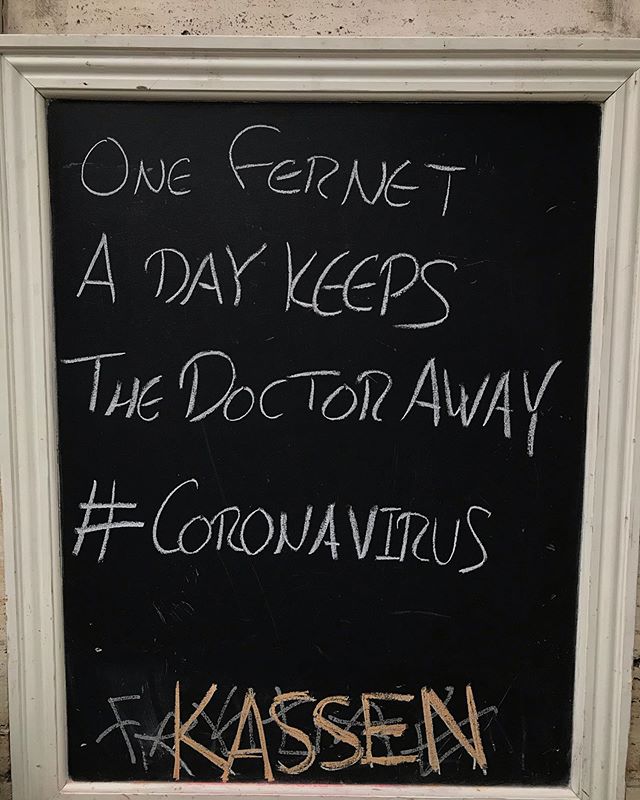 ONE FERNET
A DAY KEEPS
THE DOCTOR AWAY
#CORONAVIRUS
KASSEN